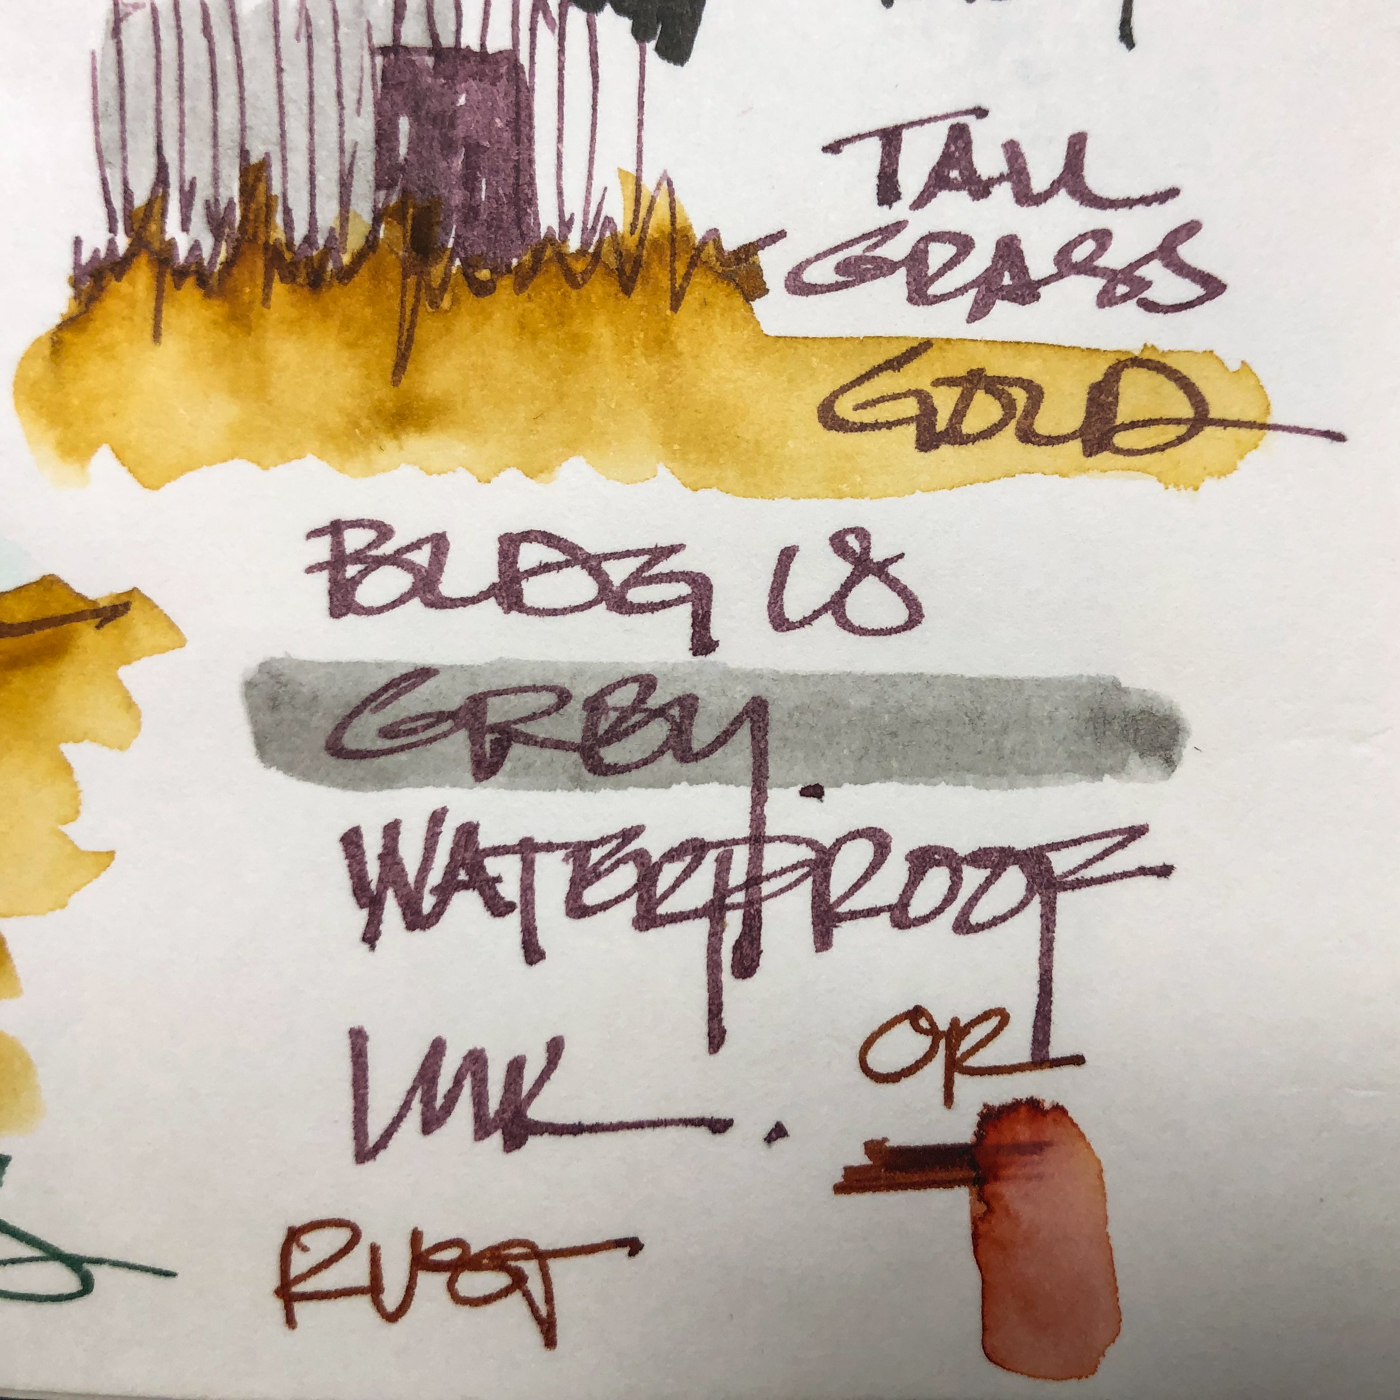 TALL
GRASS
GOLD
BLDG 18
GREY.
WATERPROOF
INK.
OR
RUST